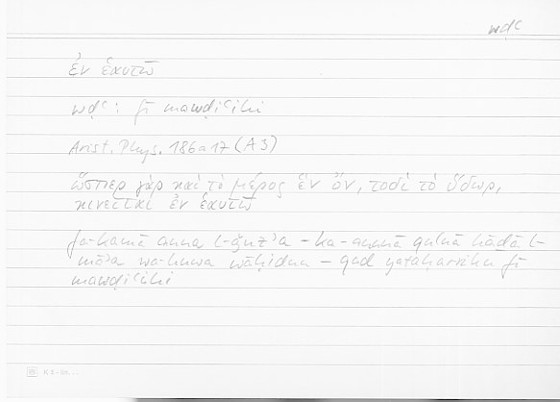 wḍʿ
ἐν ἑαυτῷ
wḍʿ : fī mawḍiʿihi
Arist. Phys. 186a17 (A 3)
ὥσπερ γὰρ καὶ τὸ μέρος ἓν ὄν, τοδὶ τὸ ὕδωρ,
κινεῖται ἐν ἑαυτῷ
fa-kamā anna l-ǧuzʾa – ka-annā qulnā hāḏā l-
māʾa wa-huwa wāḥidun – qad yataḥarraku fī
mawḍiʿihi